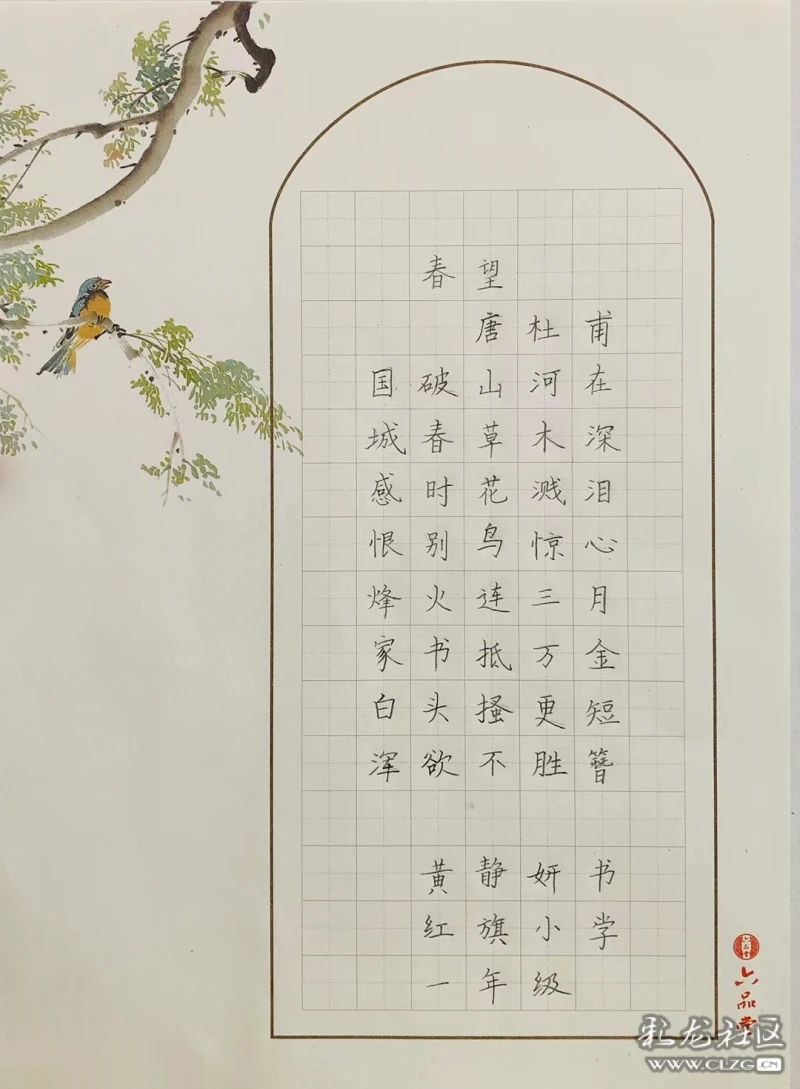 春望
唐杜甫
国破山河在
城春草木深
感时花溅泪
恨别鸟惊心
烽火连三月
家书抵万金
白头搔更短
浑欲不胜簪
黄静妍书
红旗小学
一年级
六品堂
六品堂
化龙社区
WWW.CLZG.CN